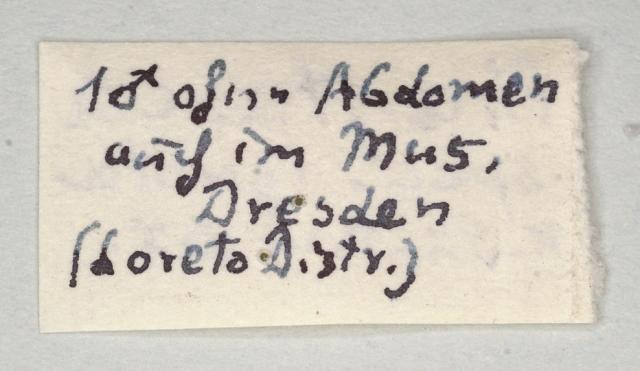 1♂ ohne Abdomen
auch im Mus.
Dresden
(Loreto Distr.)